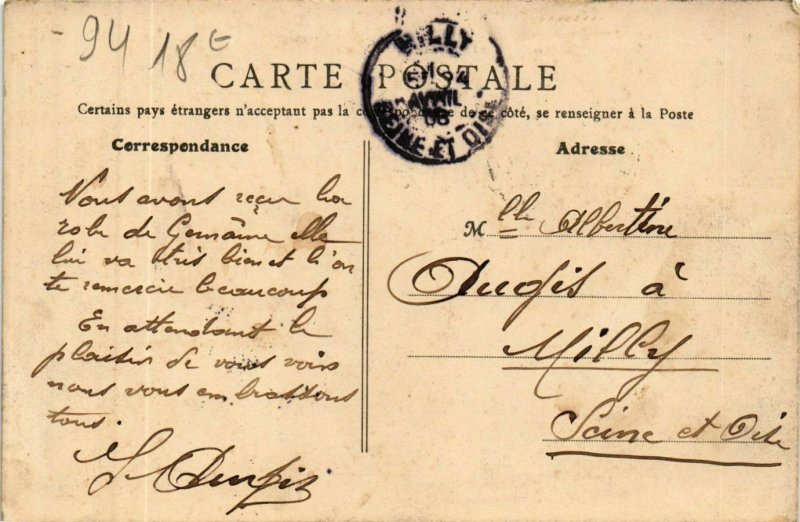 94 18€
CARTE POSTALE
Certains pays étrangers n'acceptant pas la correspondance de ce côté, se renseigner à la Poste
MILLY
AVRIL
08
SEINE ET OISE
Correspondance
Nous avons reçu la
robe de Germaine elle
lui va très bien et l'on
te remercie beaucoup
En attendant le
plaisir de vous voir
nous vous embrassons
tous.
Adresse
Mlle Albertine
à
Milly
Seine et Oise